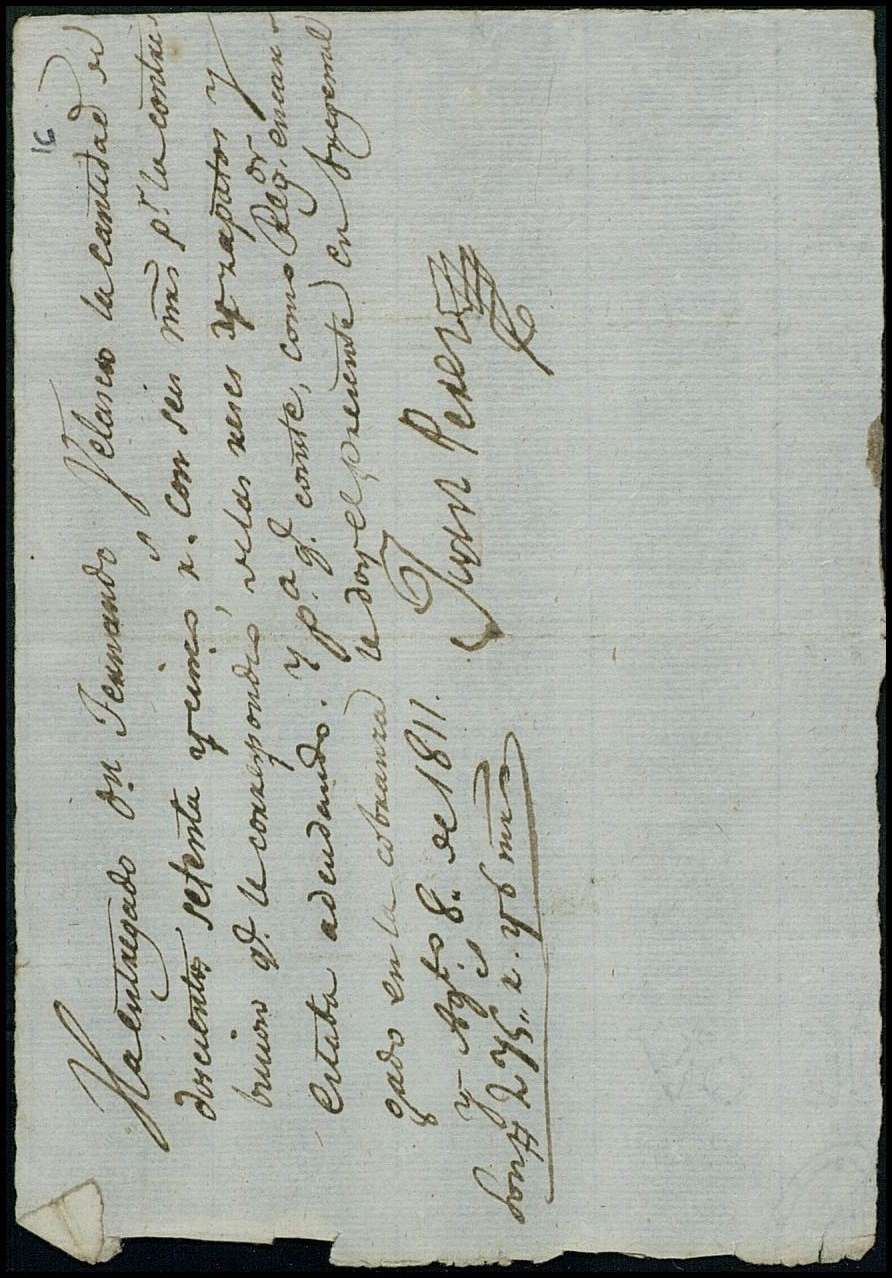 16
Ha entregado Dn. Fernando Velasco la cantidad de
doscientos setenta y cinco rs. con seis mrs pr. la contri-
bucion qe. le correspondio, de las reses y zapatos y
estaba adeudando. Y pa. qe. conste, como Regor. encar-
gado en la cobranza le doy el presente en Fregenal
y Agto. 8,, de 1811.
Juan Perez
Son # 275,, rs. y 6 mrs